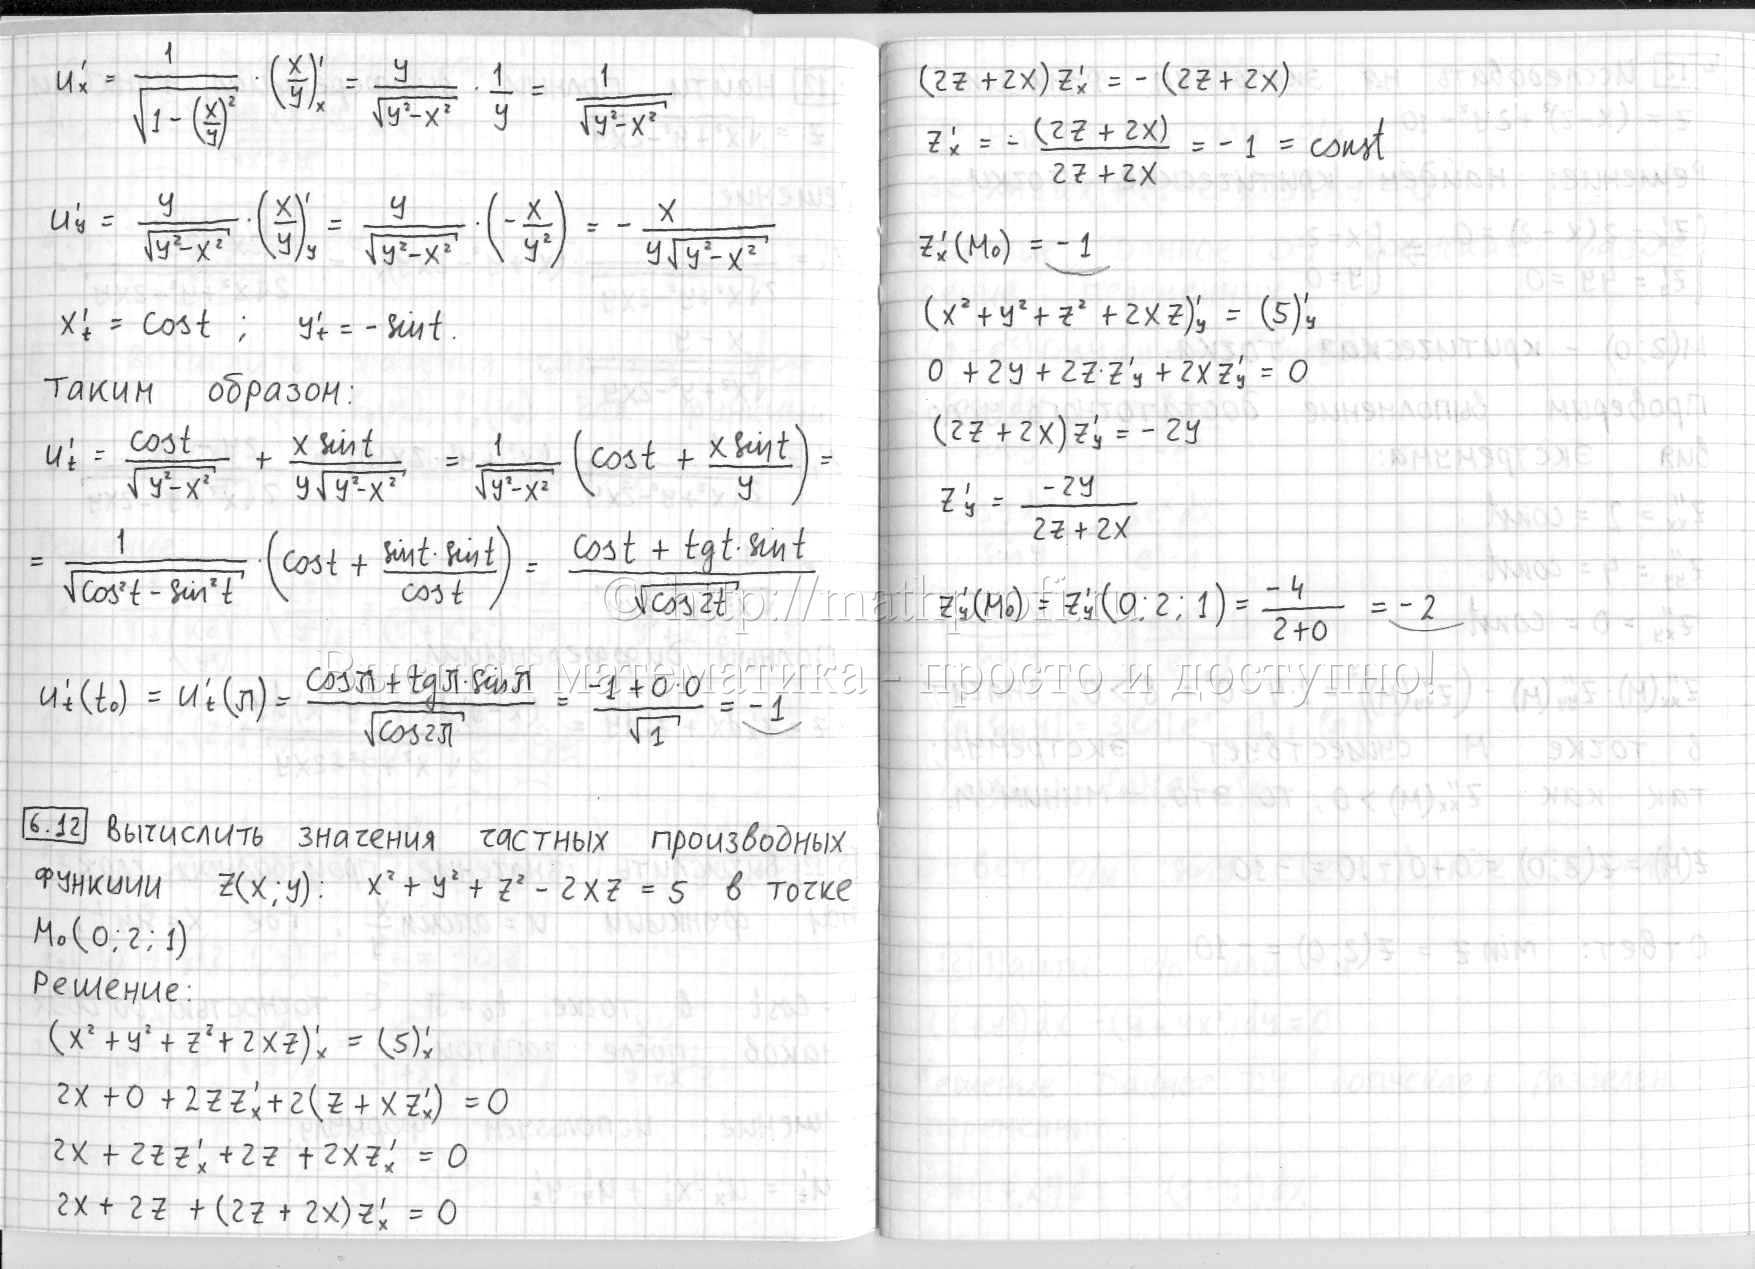 u'ₓ = 1/√(1 − (x/y)²) · (x/y)'ₓ = y/√(y²−x²) · 1/y = 1/√(y²−x²)
u'ᵧ = y/√(y²−x²) · (x/y)'ᵧ = y/√(y²−x²) · (−x/y²) = − x/(y√(y²−x²))
x'ₜ = cost ; y'ₜ = −sint.
Таким образом:
u'ₜ = cost/√(y²−x²) + x sint/(y√(y²−x²)) = 1/√(y²−x²) (cost + x sint/y) =
= 1/√(cos²t − sin²t) · (cost + sint·sint/cost) = (cost + tgt·sint)/√(cos2t)
u'ₜ(t₀) = u'ₜ(π) = (cosπ + tgπ·sinπ)/√(cos2π) = (−1+0·0)/√1 = −1
6.12 Вычислить значения частных производных
функции z(x;y): x² + y² + z² − 2xz = 5 в точке
M₀(0;2;1)
Решение:
(x² + y² + z² + 2xz)'ₓ = (5)'ₓ
2x + 0 + 2zz'ₓ + 2(z + xz'ₓ) = 0
2x + 2zz'ₓ + 2z + 2xz'ₓ = 0
2x + 2z + (2z + 2x)z'ₓ = 0
(2z + 2x)z'ₓ = −(2z + 2x)
z'ₓ = − (2z + 2x)/(2z + 2x) = −1 = const
z'ₓ(M₀) = −1
(x² + y² + z² + 2xz)'ᵧ = (5)'ᵧ
0 + 2y + 2z·z'ᵧ + 2xz'ᵧ = 0
(2z + 2x)z'ᵧ = −2y
z'ᵧ = −2y/(2z + 2x)
z'ᵧ(M₀) = z'ᵧ(0;2;1) = −4/(2+0) = −2
© http://mathprofi.ru
Высшая математика - просто и доступно!